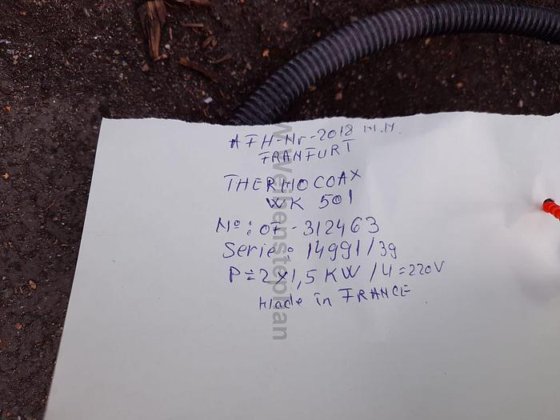 AFH-Nr-2018 M.M.
FRANFURT
THERMOCOAX
WK 501
No: OF-312463
Serie: 14991/39
P=2x1,5 KW /U=220V
Made in FRANCE
Weisensteplan